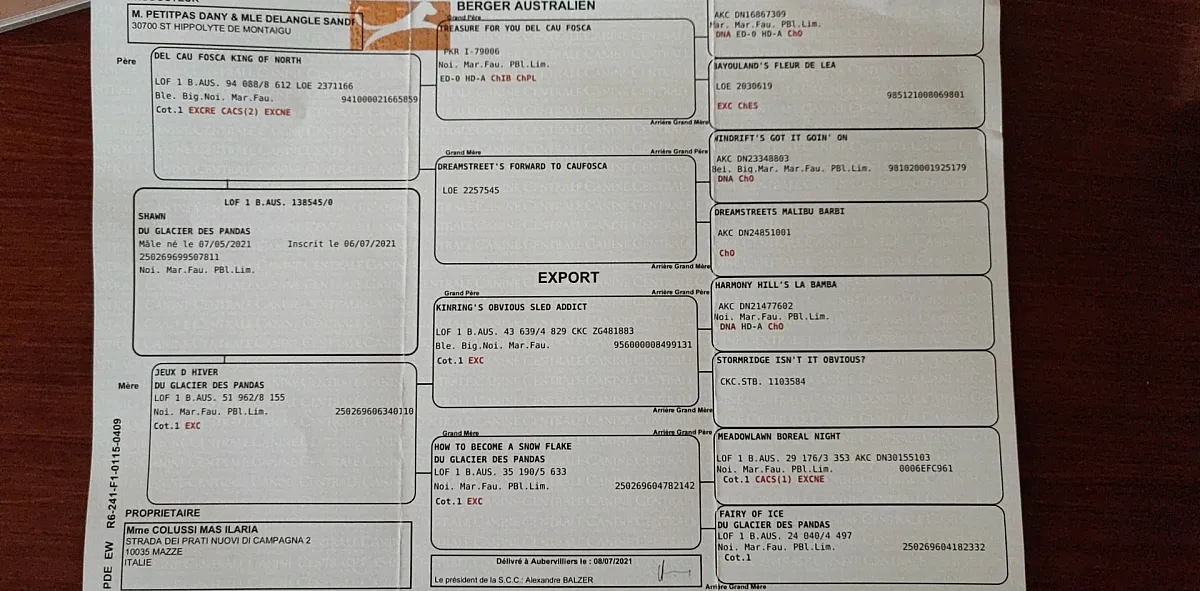 BERGER AUSTRALIEN
M. PETITPAS DANY & MLE DELANGLE
30700 ST HIPPOLYTE DE MONTAIGU
Père
DEL CAU FOSCA KING OF NORTH
LOF 1 B.AUS. 94 088/8 612 LOE 2371166
Ble. Big.Noi. Mar.Fau. 941000021665859
Cot.1 EXCRE CACS(2) EXCNE
LOF 1 B.AUS. 138545/0
SHAWN
DU GLACIER DES PANDAS
Mâle né le 07/05/2021 Inscrit le 06/07/2021
250269699507811
Noi. Mar.Fau. PBl.Lim.
Mère
JEUX D HIVER
DU GLACIER DES PANDAS
LOF 1 B.AUS. 51 962/8 155
Noi. Mar.Fau. PBl.Lim. 250269606340110
Cot.1 EXC
PDE EW R6-241-F1-0115-0409
PROPRIETAIRE
Mme COLUSSI MAS ILARIA
STRADA DEI PRATI NUOVI DI CAMPAGNA 2
10035 MAZZE
ITALIE
Grand Père
TREASURE FOR YOU DEL CAU FOSCA
PKR I-79006
Noi. Mar.Fau. PBl.Lim.
ED-0 HD-A ChIB ChPL
Arrière Grand Mère
Grand Mère
Arrière Grand Père
DREAMSTREET'S FORWARD TO CAUFOSCA
LOE 2257545
Arrière Grand Mère
EXPORT
Grand Père
Arrière Grand Père
KINRING'S OBVIOUS SLED ADDICT
LOF 1 B.AUS. 43 639/4 829 CKC ZG481883
Ble. Big.Noi. Mar.Fau. 956000008499131
Cot.1 EXC
Arrière Grand Mère
Grand Mère
Arrière Grand Père
HOW TO BECOME A SNOW FLAKE
DU GLACIER DES PANDAS
LOF 1 B.AUS. 35 190/5 633
Noi. Mar.Fau. PBl.Lim. 250269604782142
Cot.1 EXC
Délivré à Aubervilliers le : 08/07/2021
Le président de la S.C.C.: Alexandre BALZER
Arrière Grand Mère
AKC DN16867309
Mar. Mar.Fau. PBl.Lim.
DNA ED-0 HD-A ChO
BAYOULAND'S FLEUR DE LEA
LOE 2030619
985121008069801
EXC ChES
WINDRIFT'S GOT IT GOIN' ON
AKC DN23348803
Bei. Big.Mar. Mar.Fau. PBl.Lim. 981020001925179
DNA ChO
DREAMSTREETS MALIBU BARBI
AKC DN24851001
ChO
HARMONY HILL'S LA BAMBA
AKC DN21477602
Noi. Mar.Fau. PBl.Lim.
DNA HD-A ChO
STORMRIDGE ISN'T IT OBVIOUS?
CKC.STB. 1103584
MEADOWLAWN BOREAL NIGHT
LOF 1 B.AUS. 29 176/3 353 AKC DN30155103
Noi. Mar.Fau. PBl.Lim. 0006EFC961
Cot.1 CACS(1) EXCNE
FAIRY OF ICE
DU GLACIER DES PANDAS
LOF 1 B.AUS. 24 040/4 497
Noi. Mar.Fau. PBl.Lim. 250269604182332
Cot.1